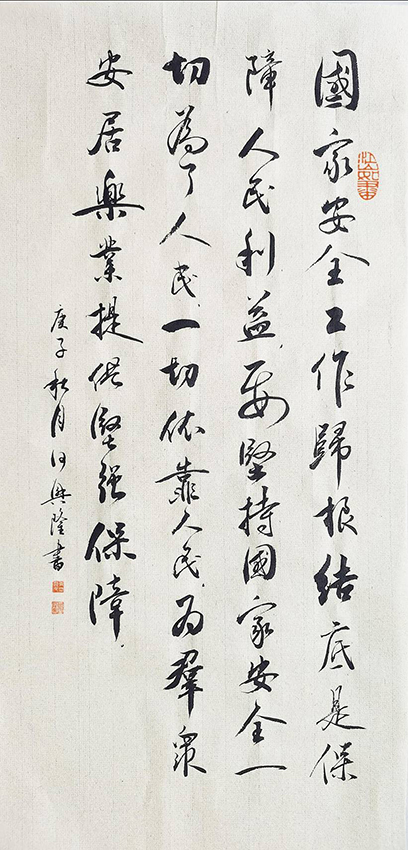 國家安全工作歸根结底是保
障人民利益,要堅持國家安全一
切為了人民,一切依靠人民,为羣衆
安居樂業提供堅强保障,
庚子秋月何興隆書